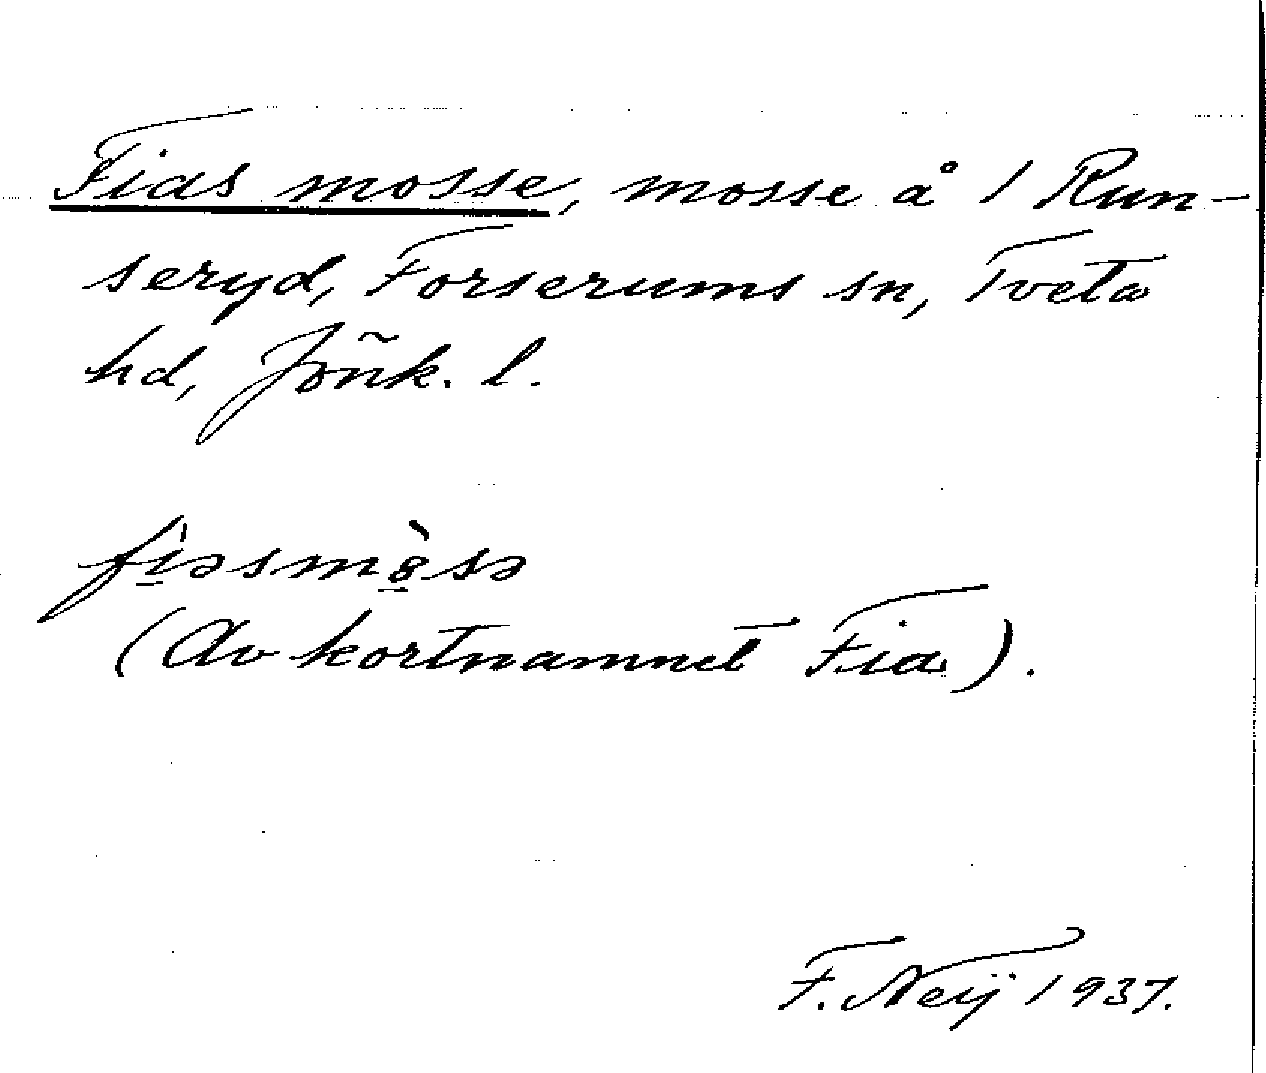 Fias mosse, mosse å 1 Run-
seryd, Forserums sn, Tveta
hd, Jönk. l.
fìəsmò̀sə
(Av kortnamnet Fia).
F. Neij 1937.